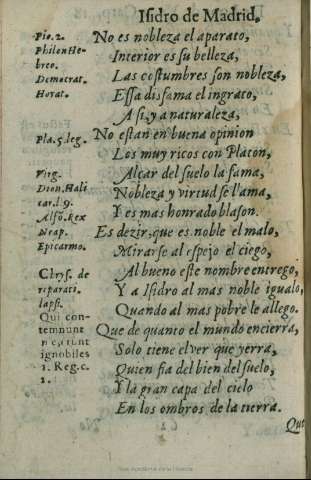 Isidro de Madrid.
Pio. 2.
Philon He-
breo.
Democrat.
Horat.
Pla. 5. leg.
Virg.
Dion. Hali
car. l. 9.
Alfõ. Rex
Neap.
Epicarmo.
Chrys. de
reparati.
lapsi.
Qui con-
temnunt
me, erunt
ignobiles
1. Reg. c.
1.
No es nobleza el aparato,
Interior es su belleza,
Las costumbres son nobleza,
Essa disfama el ingrato,
A si, y a naturaleza,
No estan en buena opinion
Los muy ricos con Platon,
Alçar del suelo la fama,
Nobleza y virtud se l'ama,
Y es mas honrado blason.
Es dezir, que es noble el malo,
Mirarse al espejo el ciego,
Al bueno este nombre entrego,
Y a Isidro al mas noble igualo,
Quando al mas pobre le allego.
Que de quanto el mundo encierra,
Solo tiene el ver que yerra,
Quien fia del bien del suelo,
Y la gran capa del cielo
En los ombros de la tierra.
Que